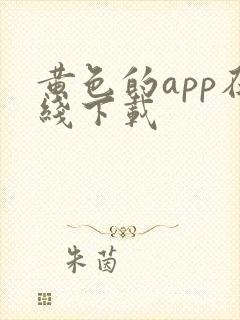 黄色的app在
线下载
朱茵